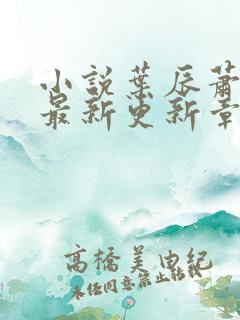 小說葉辰蕭
最新更新章
高橋美由紀
未经同意禁止转载